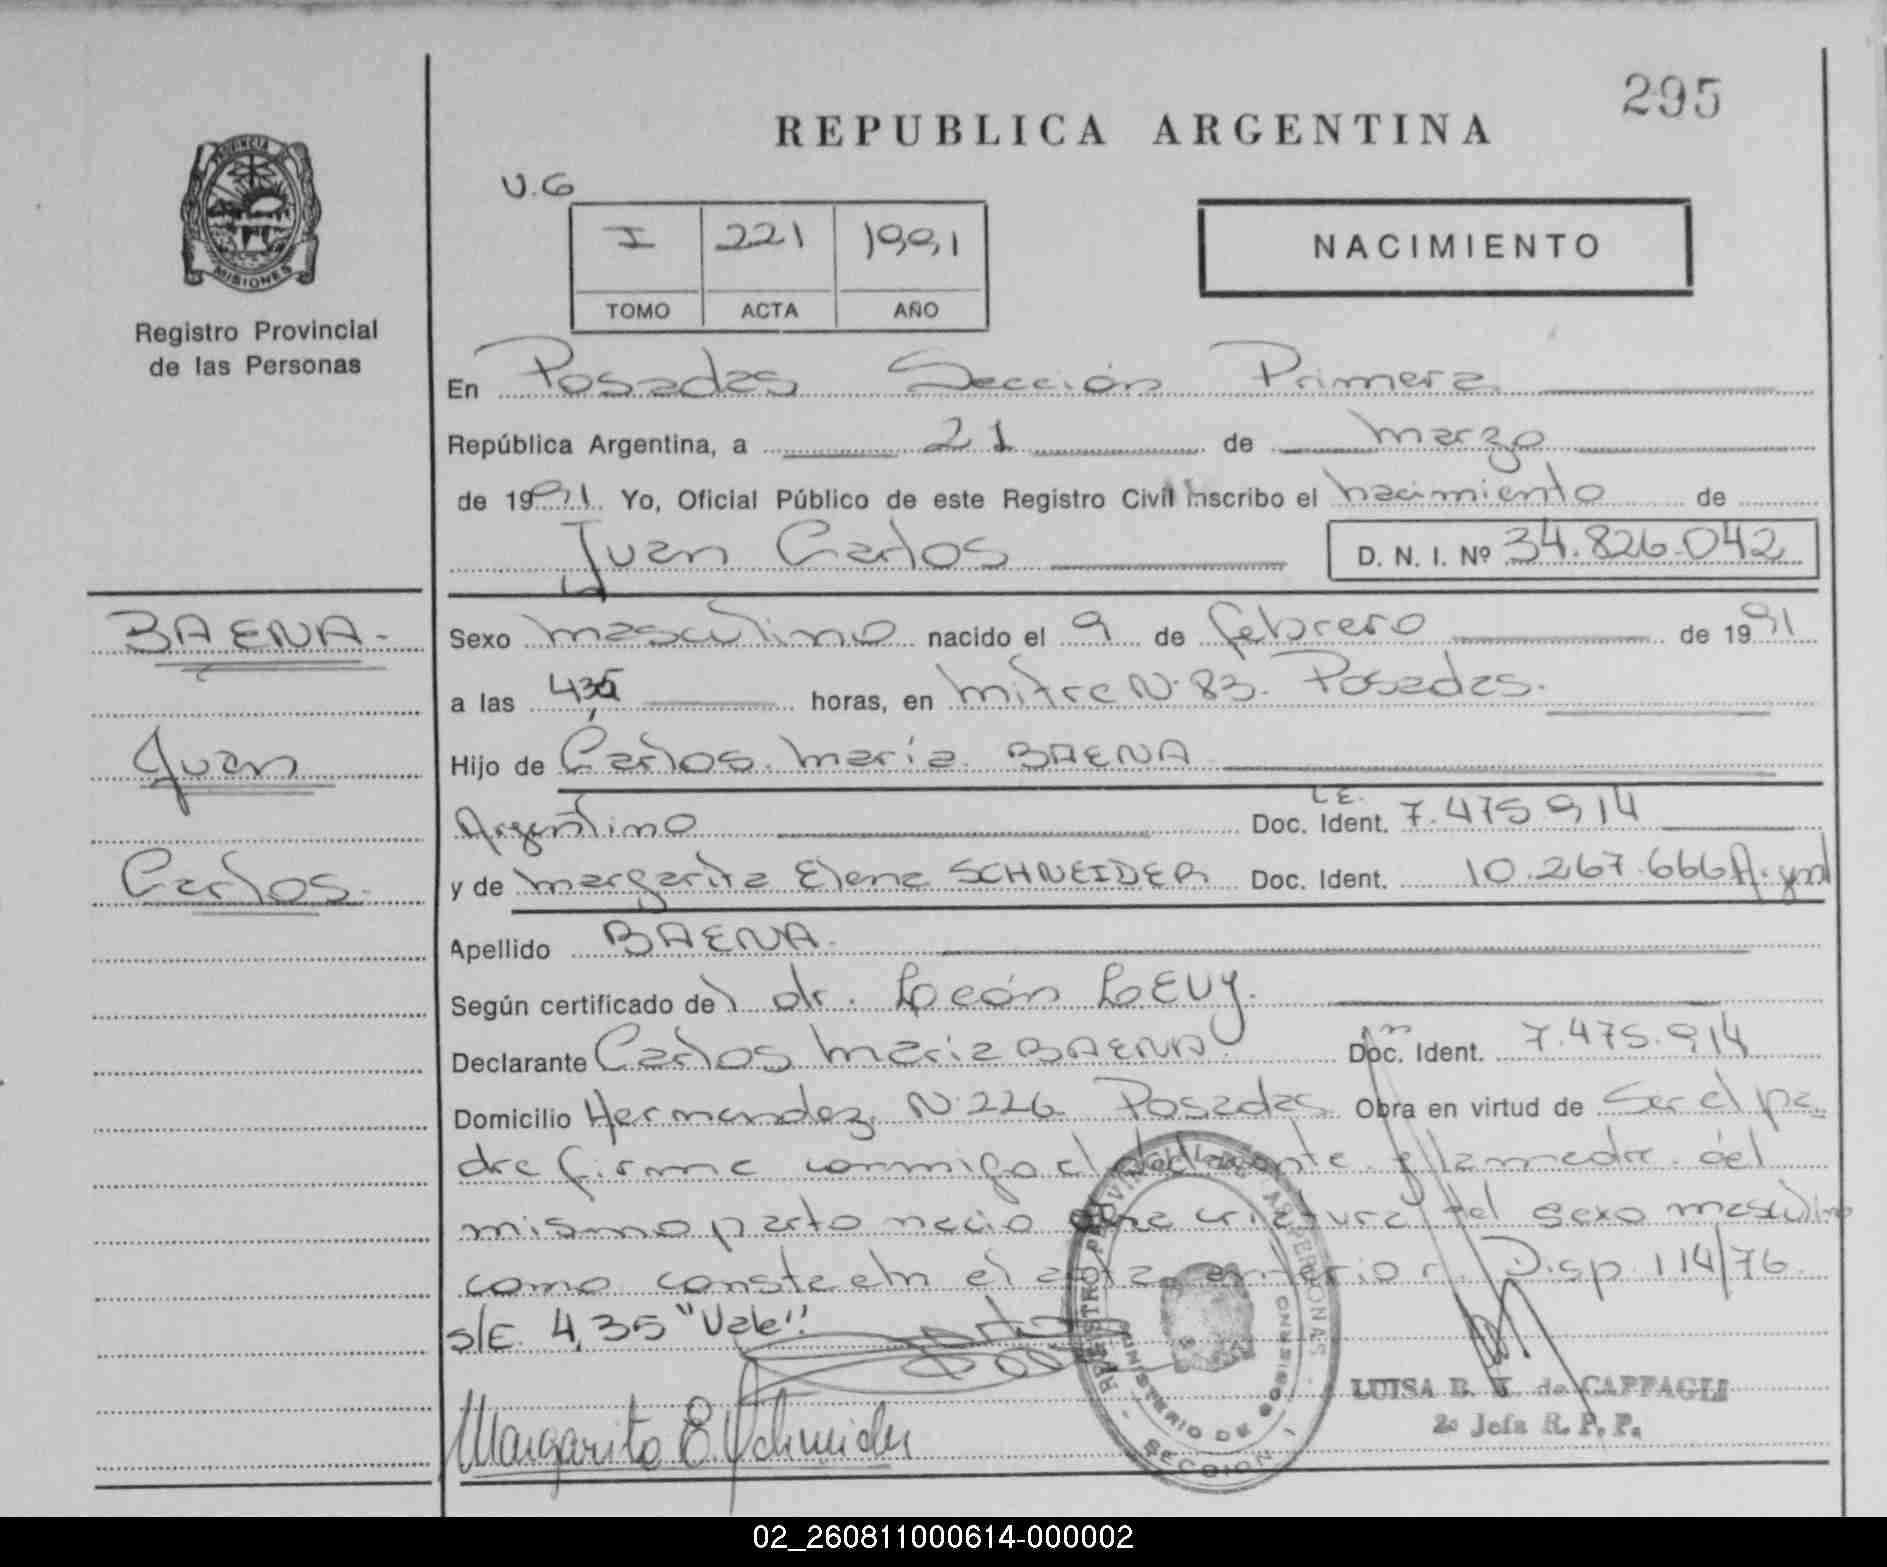 295
REPUBLICA ARGENTINA
U.G
PROVINCIA DE
MISIONES
Registro Provincial
de las Personas
I 221 1991
TOMO ACTA AÑO
NACIMIENTO
En Posadas Sección Primera
República Argentina, a 21 de marzo
de 1991. Yo, Oficial Público de este Registro Civil Inscribo el nacimiento de
Juan Carlos D. N. I. Nº 34.826.042
BAENA.
Juan
Carlos.
Sexo masculino nacido el 9 de febrero de 1991
a las 4,35 horas, en mitre N. 83. Posadas.
Hijo de Carlos maría BAENA
L.E.
Argentino Doc. Ident. 7.475.914
y de margarita Elena SCHNEIDER Doc. Ident. 10.267.666
Apellido BAENA.
Según certificado del dr. León LEVY.
Declarante Carlos maria BAENA Doc. Ident. 7.475.914
Domicilio Hernandez N. 226 Posadas Obra en virtud de Ser el pa
dre firma conmigo el declarante y la madre del
mismo parto nacio otra criatura del sexo masculino
como consta en el acta anterior. Disp 114/76
s/E. 4,35 "Vale"
Margarita E. Schneider
REGISTRO PROVINCIAL DE LAS PERSONAS
MINISTERIO DE GOBIERNO
SECCION 1
LUISA B. V. de CAFFAGLI
2º Jefa R. P. P.
02_260811000614-000002